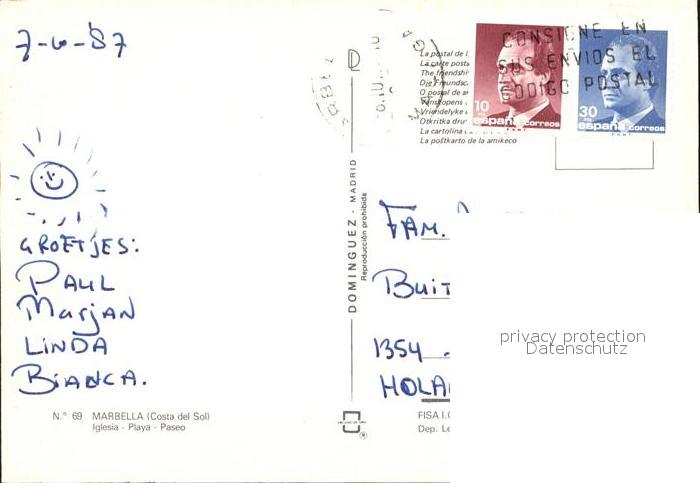 7-6-'87
GROETJES:
PAUL
Marjan
LINDA
BIANCA.
N.° 69 MARBELLA (Costa del Sol)
Iglesia - Playa - Paseo
DOMINGUEZ - MADRID
Reproducción prohibida
La postal de l
La carte posta
The friendshi
Die Freundsc
O postal de a
Vriendelyke
Otkritka dru
La cartolina
La poŝtkarto de la amikeco
CONSIGNE EN
SUS ENVIOS EL
CODIGO POSTAL
10
españa correos
30
españa correos
FAM.
BUIT
1354
HOLA
privacy protection
Datenschutz
FISA I.G
Dep. Le